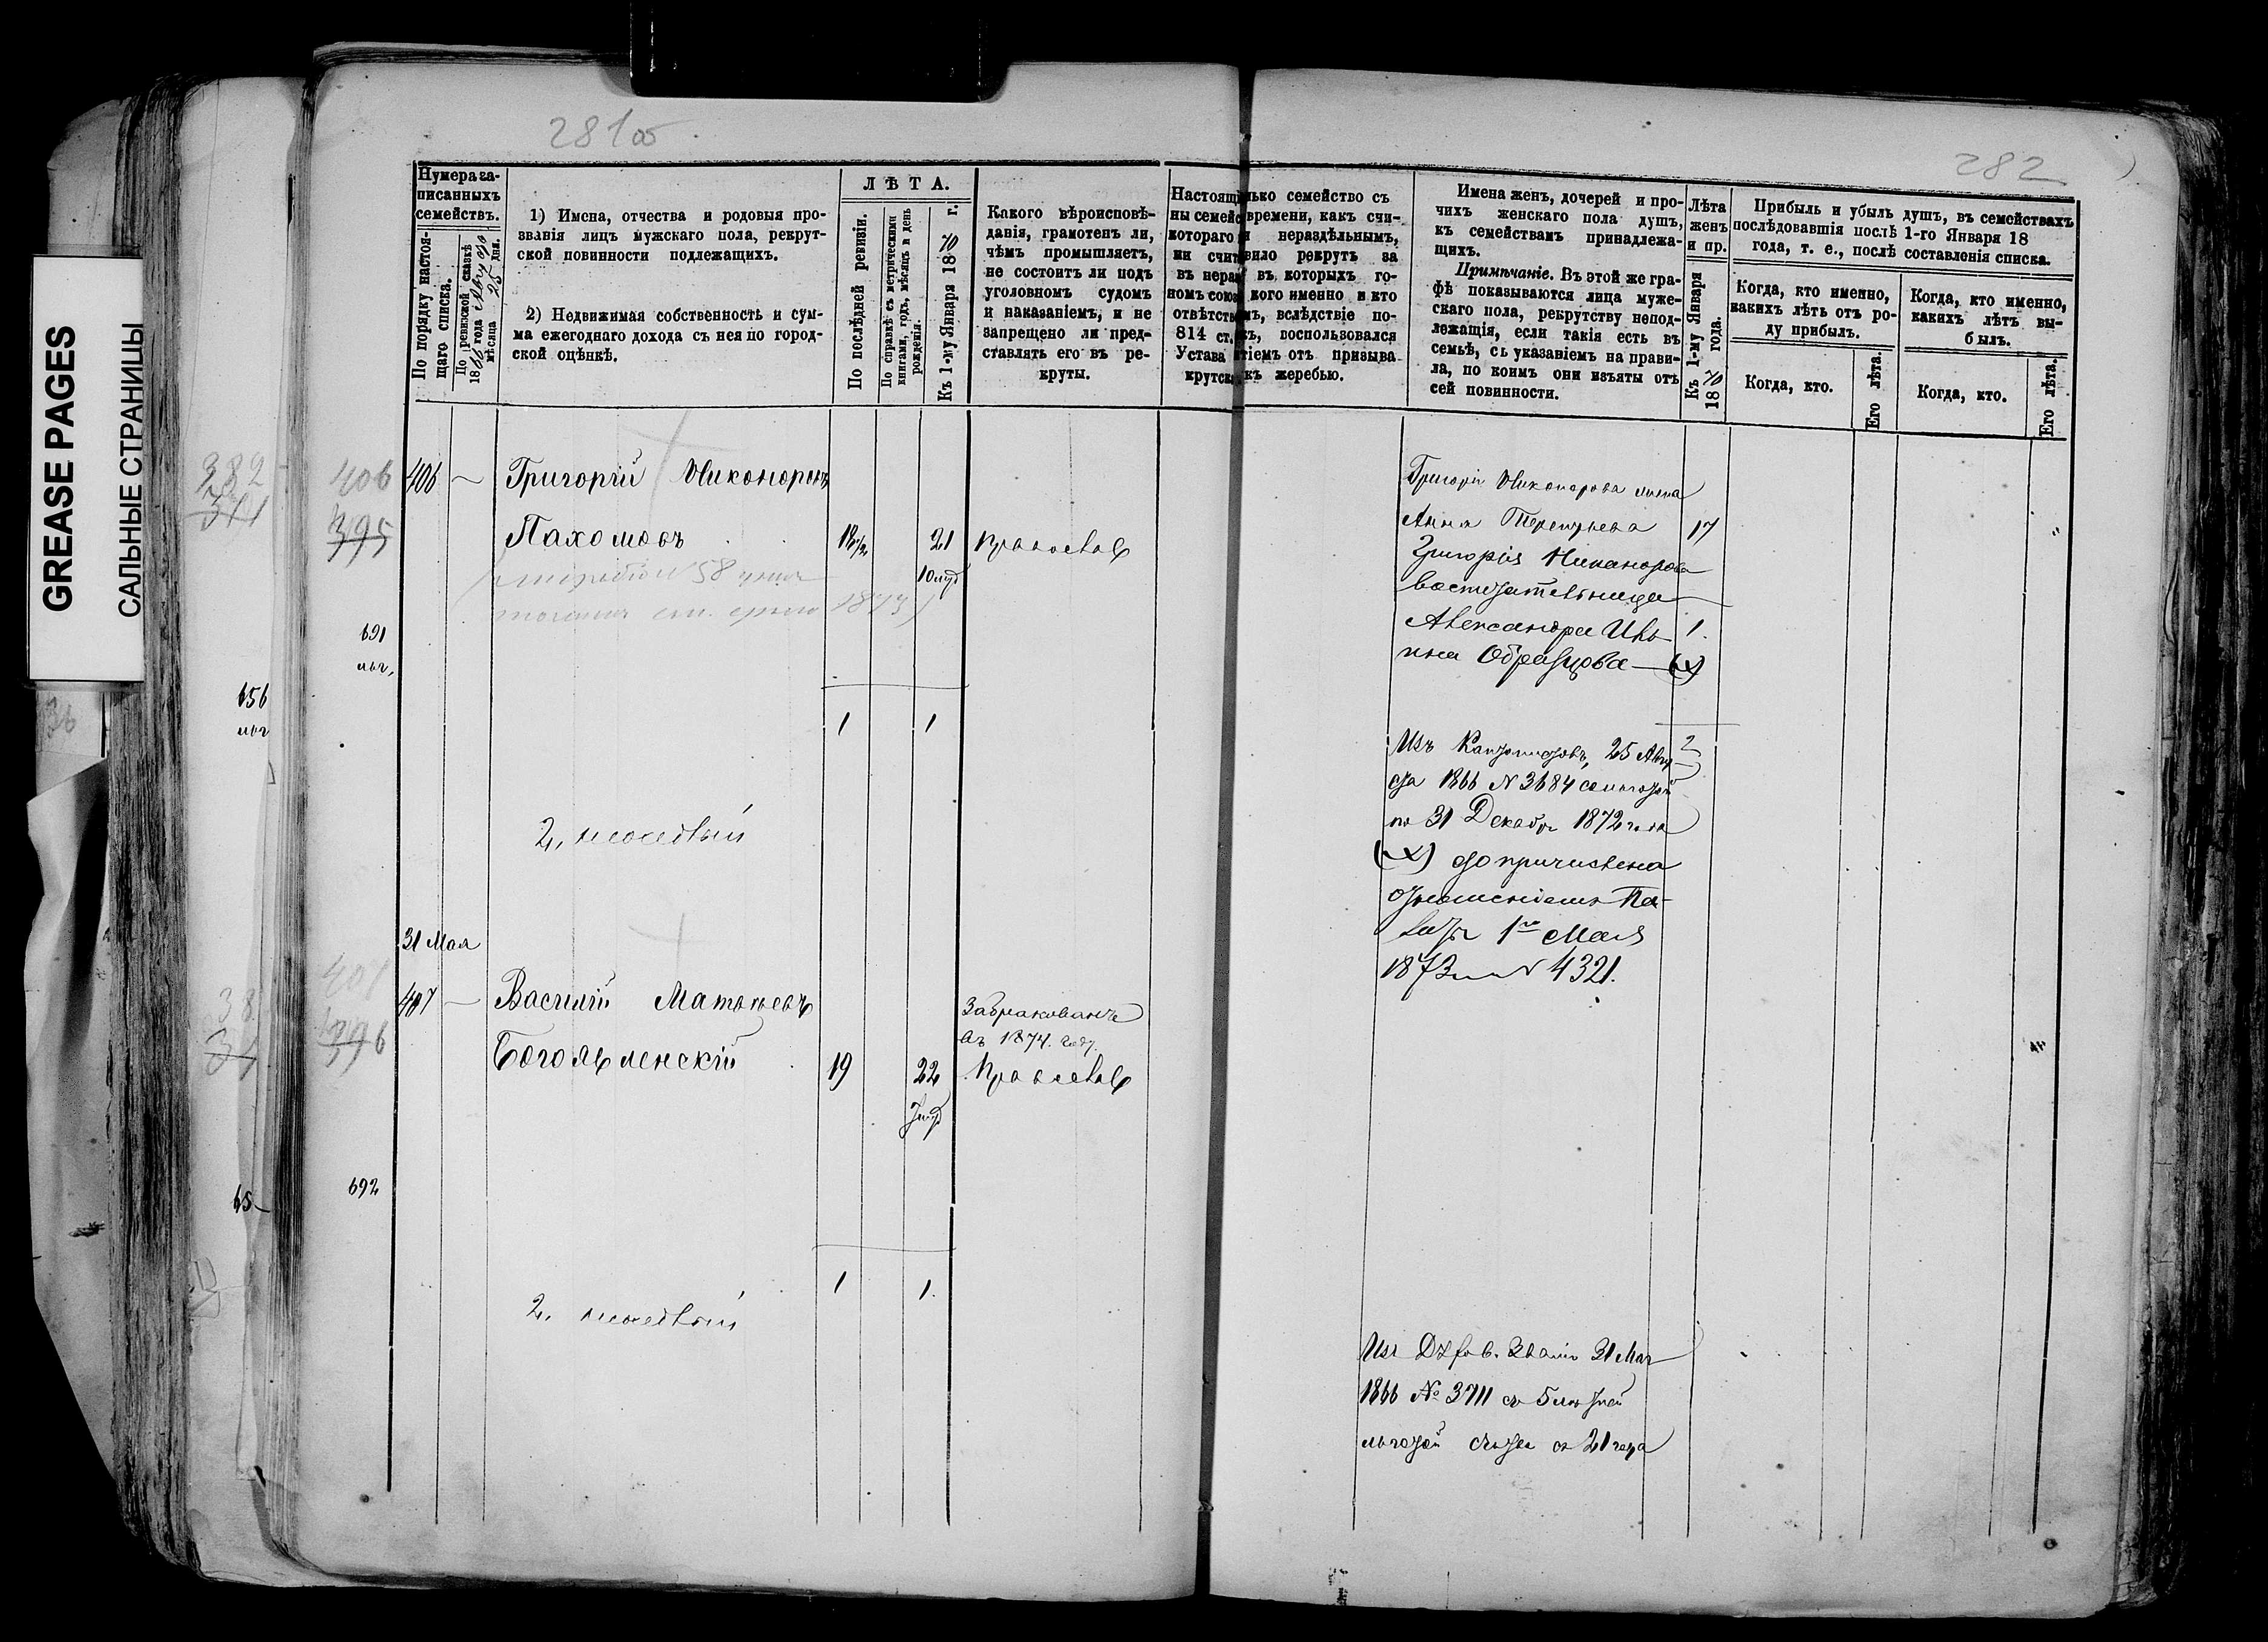 GREASE PAGES
САЛЬНЫЕ СТРАНИЦЫ
281об
282
Нумера за-
писанныхъ
семействъ.
По порядку настоя-
щаго списка.
По ревизской сказкѣ
18 года
мѣсяца 25 дня.
1) Имена, отчества и родовыя про-
званія лицъ мужскаго пола, рекрут-
ской повинности подлежащихъ.
2) Недвижимая собственность и сум-
ма ежегоднаго дохода съ нея по город-
ской оцѣнкѣ.
ЛѢТА.
По послѣдней ревизіи.
По справкѣ съ метрическими
книгами, годъ, мѣсяцъ и день
рожденія.
Къ 1-му Января 1870 г.
Какого вѣроисповѣ-
данія, грамотенъ ли,
чѣмъ промышляетъ,
не состоитъ ли подъ
уголовномъ судомъ
и наказаніемъ, и не
запрещено ли пред-
ставлять его въ ре-
круты.
Настоящ
ны семейс
котораго
ни счит
въ нераз
номъ союз
отвѣтств
814 ст.
Устава
крутск
лько семейство съ
времени, какъ счи-
и нераздѣльнымъ,
вило рекрутъ за
въ которыхъ го-
кого именно и кто
мъ, вслѣдствіе по-
къ, воспользовался
тіемъ отъ призыва
къ жеребью.
Имена женъ, дочерей и про-
чихъ женскаго пола душъ,
къ семействамъ принадлежа-
щихъ.
Примѣчаніе. Въ этой же гра-
фѣ показываются лица муже-
скаго пола, рекрутству непод-
лежащія, если такія есть въ
семьѣ, съ указаніемъ на прави-
ла, по коимъ они изъяты отъ
сей повинности.
Лѣта
женъ
и пр.
Къ 1-му Января
1870 года.
Прибыль и убыль душъ, въ семействахъ
послѣдовавшія послѣ 1-го Января 18
года, т. е., послѣ составленія списка.
Когда, кто именно,
какихъ лѣтъ отъ ро-
ду прибылъ.
Когда, кто именно,
какихъ лѣтъ вы-
былъ.
Когда, кто.
Его лѣта.
Когда, кто.
Его лѣта.
382
406
395
406 Григорій Никоноровъ
Пахомовъ 18 1/2 21 Православ
58
1873
691
льг.
656
льг
1 1
Григорія Никонорова жена
Анна Терентьева 17
Григорія Никанорова
воспитательница
Александра Ива- 1.
нова Образцова (х)
2
Изъ Кантонистовъ, 25 Авгу
ста 1866 N 3684 со льготой
по 31 Декабря 1872 года
(х) допричислена
отношеніемъ Па-
латы 1го Мая
1873 N 4321.
31 Мая
407
396
407 Василій Матвѣевъ
Боголѣпенскій 19 22
Забракованъ
въ 1874. году.
Православ
692
65
1 1.
Изъ Духов. Званія 31 Мая
1866 № 3711 съ 5 лѣтней
льготой съ 21 года